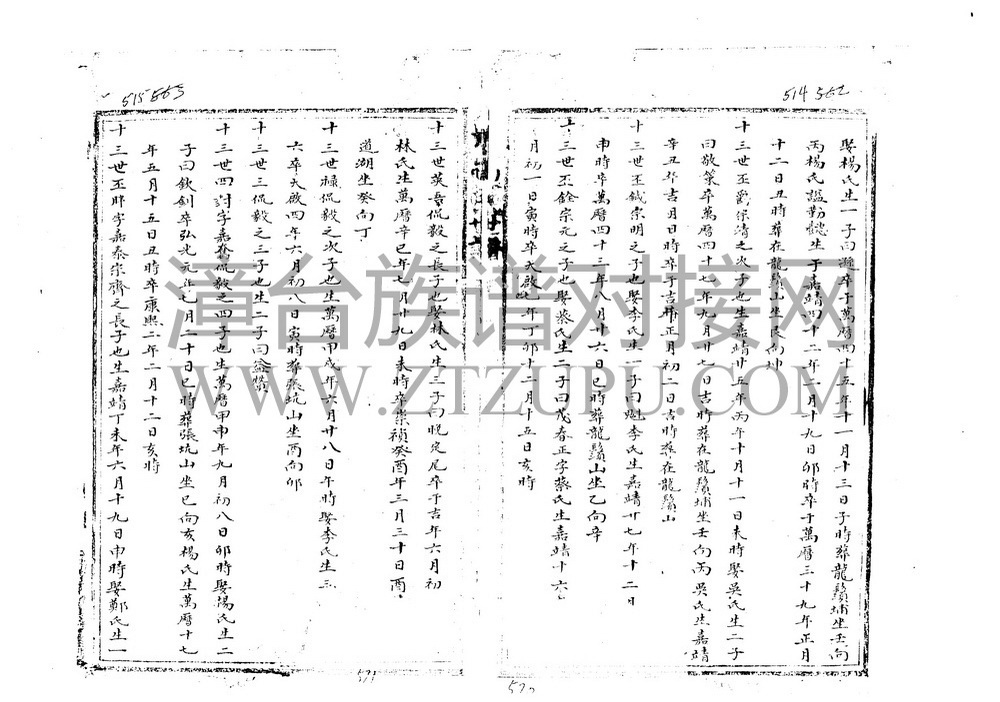 514 562
娶楊氏生一子曰遜卒于萬曆四十五年十一月十三日子時葬龍鬚埔坐壬向
丙楊氏謚勤懿生于嘉靖四十二年二月十九日卯時卒于萬曆三十九年正月
十二日丑時葬在龍鬚山坐艮向坤
十三世丕 宗靖之次子也生嘉靖廿五年丙午十月十一日未時娶吳氏生二子
曰敬策卒萬曆四十七年九月廿七日吉時葬在龍鬚埔坐壬向丙吳氏生嘉靖
辛丑年吉月日時卒于吉年正月初二日吉時葬在龍鬚山
十三世丕鉞宗明之子也娶李氏生一子曰魁李氏生嘉靖廿七年十二月
申時卒萬曆四十三年八月十六日巳時葬龍鬚山坐乙向辛
十三世丕銓宗元之子也娶蔡氏生二子曰茂春正字蔡氏生嘉靖十六
月初一日寅時卒天啟七年丁卯十二月十五日亥時
520
515 563
十三世英 侃毅之長子也娶林氏生三子曰悅定尾卒于吉年六月初
林氏生萬曆辛巳年七月廿九日未時卒崇禎癸酉年三月三十日酉
道湖坐癸向丁
十三世祿侃毅之次子也生萬曆甲戌年六月廿八日午時娶李氏生三
六卒天啟四年六月初八日寅時葬張坑山坐酉向卯
十三世三侃毅之三子也生二子曰益贊
十三世四 字嘉 侃毅之四子也生萬曆甲申年九月初八日卯時娶楊氏生二
子曰欽釗卒弘光元年七月二十日巳時葬張坑山坐巳向亥楊氏生萬曆十七
年五月十五日丑時卒康熙二年二月十二日亥時
十三世丕 字嘉泰宗齊之長子也生嘉靖丁未年六月十九日申時娶鄭氏生一
521
漳台族谱对接网
WWW.ZTZUPU.COM